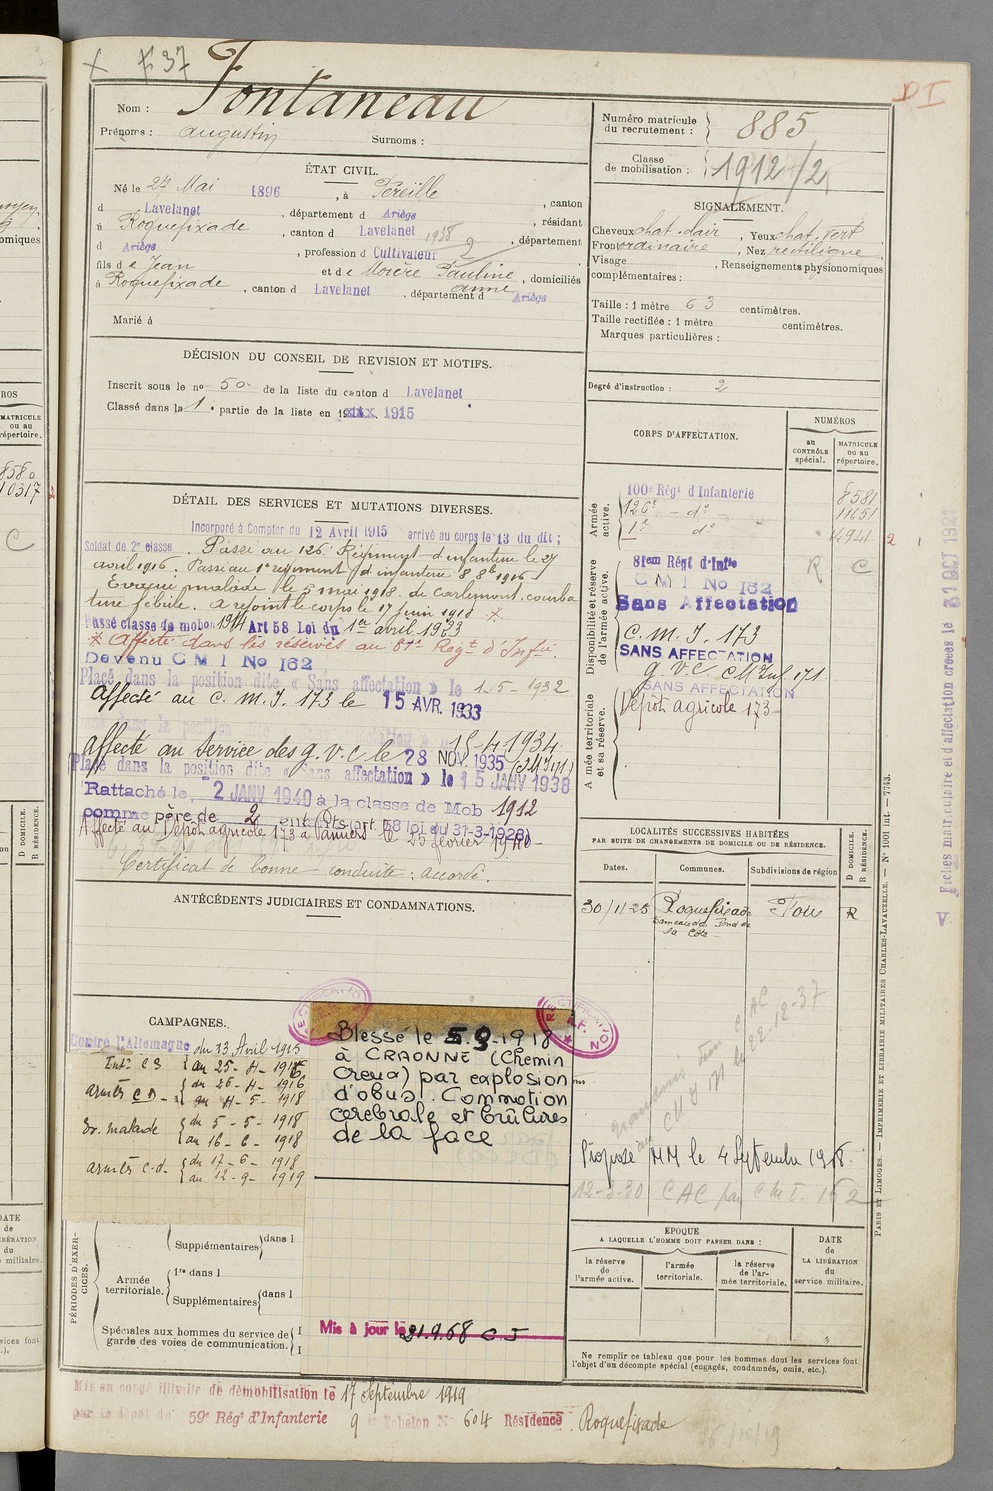 X 37
Nom : Fontaneau
Prénoms : Augustin Surnoms :
Numéro matricule du recrutement : 885
Classe de mobilisation : 1912/2
ÉTAT CIVIL.
Né le 27 Mai 1896, à Péreille, canton
d Lavelanet, département d Ariège, résidant
à Roquefixade, canton d Lavelanet 1938, département
d Ariège, profession d Cultivateur 2
fils de Jean et de Morère Pauline Anne, domiciliés
à Roquefixade, canton d Lavelanet, département d Ariège
Marié à
SIGNALEMENT.
Cheveux chat. clair, Yeux chat. vert
Front ordinaire, Nez rectiligne
Visage, Renseignements physionomiques
complémentaires :
Taille : 1 mètre 63 centimètres.
Taille rectifiée : 1 mètre centimètres.
Marques particulières :
Degré d'instruction : 2
DÉCISION DU CONSEIL DE REVISION ET MOTIFS.
Inscrit sous le nº 50 de la liste du canton d Lavelanet
Classé dans la 1e partie de la liste en 1915
CORPS D'AFFECTATION.
NUMÉROS
au CONTRÔLE spécial.
MATRICULE ou au répertoire.
Armée active.
100e Régt d'Infanterie 8581
126e dº 11651
1er dº 4941 2
Disponibilité et réserve de l'armée active.
81em Régt d'Infie R C
C M I No 162
Sans Affectation
C. M. I. 173
SANS AFFECTATION
G. V. C. CM Inf. 171
SANS AFFECTATION
Armée territoriale et sa réserve.
Dépôt agricole 173
DÉTAIL DES SERVICES ET MUTATIONS DIVERSES.
Incorporé à Compter du 12 Avril 1915 arrivé au corps le 13 du dit ;
Soldat de 2e classe. Passé au 126e Régiment d'infanterie le 27
avril 1916. Passé au 1er régiment d'infanterie 8 8bre 1916
Evacué malade le 5 mai 1918. de Carlemont. courba
ture fébrile. A rejoint le corps le 17 juin 1918 *
Passé classe de mobon 1914 Art 58 Loi du 1er avril 1923
* Affecté dans les réserves au 81e Régt d'Infie
Devenu C M I No 162
Placé dans la position dite « Sans affectation » le 1-5-1932
Affecté au C. M. I. 173 le 15 AVR. 1933
15-4-1934
affecté au Service des G. V. C. le 28 NOV. 1935
Placé dans la position dite « Sans affectation » le 15 JANV 1938
Rattaché le 2 JANV 1940 à la classe de Mob 1912
comme père de 2 enfants (art. 58 loi du 31-3-1928)
Affecté au Dépôt agricole 173 à Pamiers le 25 février 1940
Certificat de bonne conduite : accordé.
LOCALITÉS SUCCESSIVES HABITÉES
PAR SUITE DE CHANGEMENTS DE DOMICILE OU DE RÉSIDENCE.
Dates. Communes. Subdivisions de région D DOMICILE. R RÉSIDENCE.
30/11/25 Roquefixade Foix R
ANTÉCÉDENTS JUDICIAIRES ET CONDAMNATIONS.
CAMPAGNES.
Contre l'Allemagne du 13 Avril 1915
Intr CS { au 25-4-1916
armées CD { du 26-4-1916
au 4-5-1918
Ev. malade { du 5-5-1918
au 16-6-1918
armées c.d. { du 17-6-1918
au 12-9-1919
RECTIFICATION
Blessé le 5.9.1918
à CRAONNE (Chemin
Creux) par explosion
d'obus. Commotion
cérébrale et brûlures
de la face
RECTIFICATION
Mis à jour le 21.9.68
Proposé MM le 4 Septembre 1918.
12-3-30 CAC par CMI. 162
22-12-37
PÉRIODES D'EXERCICES.
Supplémentaires dans l
Armée territoriale.
1re dans l
Supplémentaires dans l
Spéciales aux hommes du service de garde des voies de communication.
EPOQUE
A LAQUELLE L'HOMME DOIT PASSER DANS :
la réserve de l'armée active.
l'armée territoriale.
la réserve de l'armée territoriale.
DATE de LA LIBÉRATION du service militaire.
Ne remplir ce tableau que pour les hommes dont les services font
l'objet d'un décompte spécial (engagés, condamnés, omis, etc.).
Mis en congé illimité de démobilisation le 17 Septembre 1919
par le dépôt du 59e Régt d'Infanterie 9e Echelon No 604 Résidence Roquefixade
PARIS ET LIMOGES. — IMPRIMERIE ET LIBRAIRIE MILITAIRES CHARLES-LAVAUZELLE. — Nº 1001 int. — 7743.
V Fiches matriculaire et d'affectation créées le 31 OCT 1921